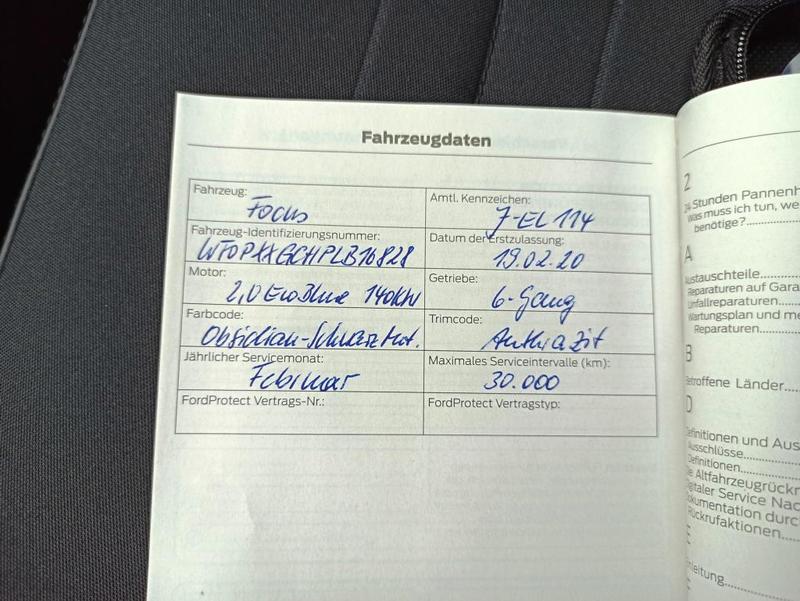 Fahrzeugdaten
Fahrzeug: Amtl. Kennzeichen:
Focus 7-EL 114
Fahrzeug-Identifizierungsnummer: Datum der Erstzulassung:
WF0PXXGCHPLB16828 19.02.20
Motor: Getriebe:
2,0 EcoBlue 140kW 6-Gang
Farbcode: Trimcode:
Obsidian-Schwarz Met. Anthrazit
Jährlicher Servicemonat: Maximales Serviceintervalle (km):
Februar 30.000
FordProtect Vertrags-Nr.: FordProtect Vertragstyp:
2
24 Stunden
Was muss ich tun, we
benötige?
A
Austauschteile
Reparaturen auf Gara
Unfallreparaturen
Wartungsplan und me
Reparaturen
B
Betroffene Länder
D
Definitionen und Aus
Ausschlüsse
Definitionen
Altfahrzeugrückn
Digitaler Service Nac
Dokumentation durc
Rückrufaktionen
E